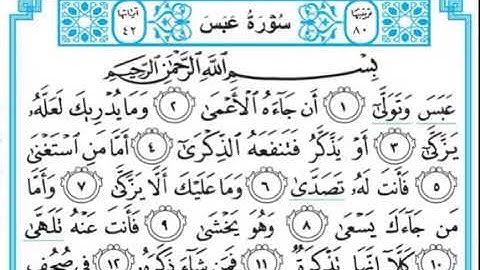 ترتيبها ٨٠ سُورَةُ عَبَسَ آياتها ٤٢
بِسْمِ اللَّهِ الرَّحْمَٰنِ الرَّحِيمِ
عَبَسَ وَتَوَلَّىٰٓ ١ أَن جَآءَهُ ٱلْأَعْمَىٰ ٢ وَمَا يُدْرِيكَ لَعَلَّهُۥ
يَزَّكَّىٰٓ ٣ أَوْ يَذَّكَّرُ فَتَنفَعَهُ ٱلذِّكْرَىٰٓ ٤ أَمَّا مَنِ ٱسْتَغْنَىٰ
٥ فَأَنتَ لَهُۥ تَصَدَّىٰ ٦ وَمَا عَلَيْكَ أَلَّا يَزَّكَّىٰ ٧ وَأَمَّا
مَن جَآءَكَ يَسْعَىٰ ٨ وَهُوَ يَخْشَىٰ ٩ فَأَنتَ عَنْهُ تَلَهَّىٰ
١٠ كَلَّآ إِنَّهَا تَذْكِرَةٌ ١١ فَمَن شَآءَ ذَكَرَهُۥ ١٢ فِى صُحُفٍ